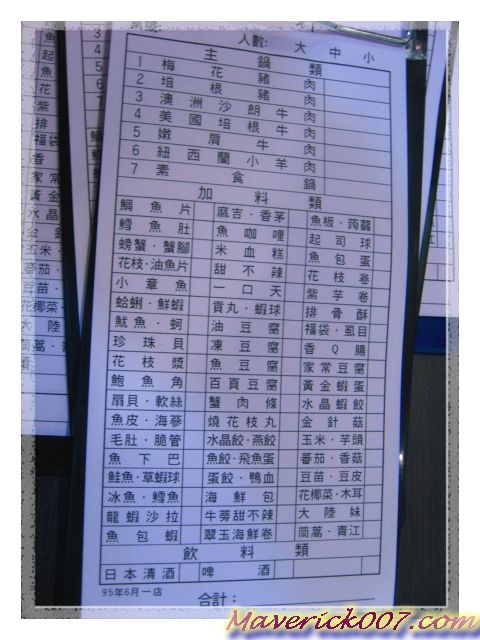 人數: 大 中 小
主 鍋 類
1 梅花豬肉
2 培根豬肉
3 澳洲沙朗牛肉
4 美國培根牛肉
5 嫩肩牛肉
6 紐西蘭小羊肉
7 素食鍋
加 料 類
鯛魚片 麻吉·香茅 魚板·蒟蒻
鱈魚肚 魚咖哩 起司球
螃蟹·蟹腳 米血糕 魚包蛋
花枝·油魚片 甜不辣 花枝卷
小章魚 一口天 紫芋卷
蛤蜊·鮮蝦 貢丸·蝦球 排骨酥
魷魚·蚵 油豆腐 福袋·虱目
珍珠貝 凍豆腐 香Q腸
花枝漿 魚豆腐 家常豆腐
鮑魚角 百頁豆腐 黃金蝦蛋
扇貝·軟絲 蟹肉條 水晶蝦餃
魚皮·海蔘 燒花枝丸 金針菇
毛肚·脆管 水晶餃·燕餃 玉米·芋頭
魚下巴 魚餃·飛魚蛋 蕃茄·香菇
鮭魚·草蝦球 蛋餃·鴨血 豆苗·豆皮
冰魚·鱈魚 海鮮包 花椰菜·木耳
龍蝦沙拉 牛蒡甜不辣 大陸妹
魚包蝦 翠玉海鮮卷 茼蒿·青江
飲 料 類
日本清酒 啤酒
95年6月一店 合計:
Maverick007.com